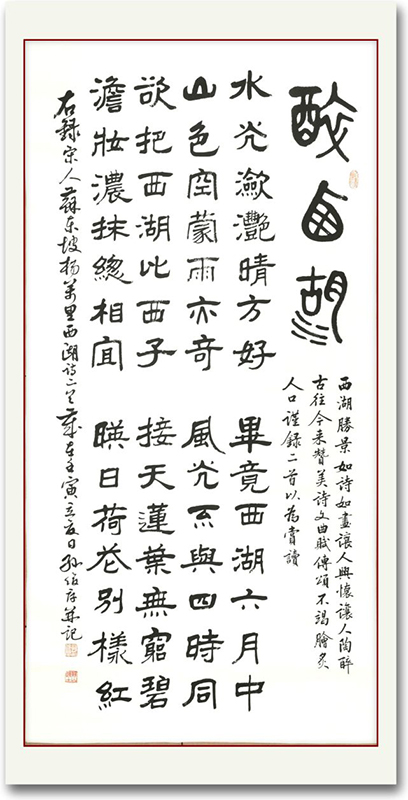 醉西湖
西湖勝景如詩如畫讓人興懷讓人陶醉
古往今来贊美詩文曲賦傳頌不竭膾炙
人口謹錄二首以為賞讀
水光瀲灧晴方好
山色空蒙雨亦奇
欲把西湖比西子
澹妝濃抹總相宜
畢竟西湖六月中
風光不與四時同
接天蓮葉無窮碧
暎日荷花別樣紅
右錄宋人蘇東坡楊萬里西湖詩二首歲在壬寅立夏日孫并記